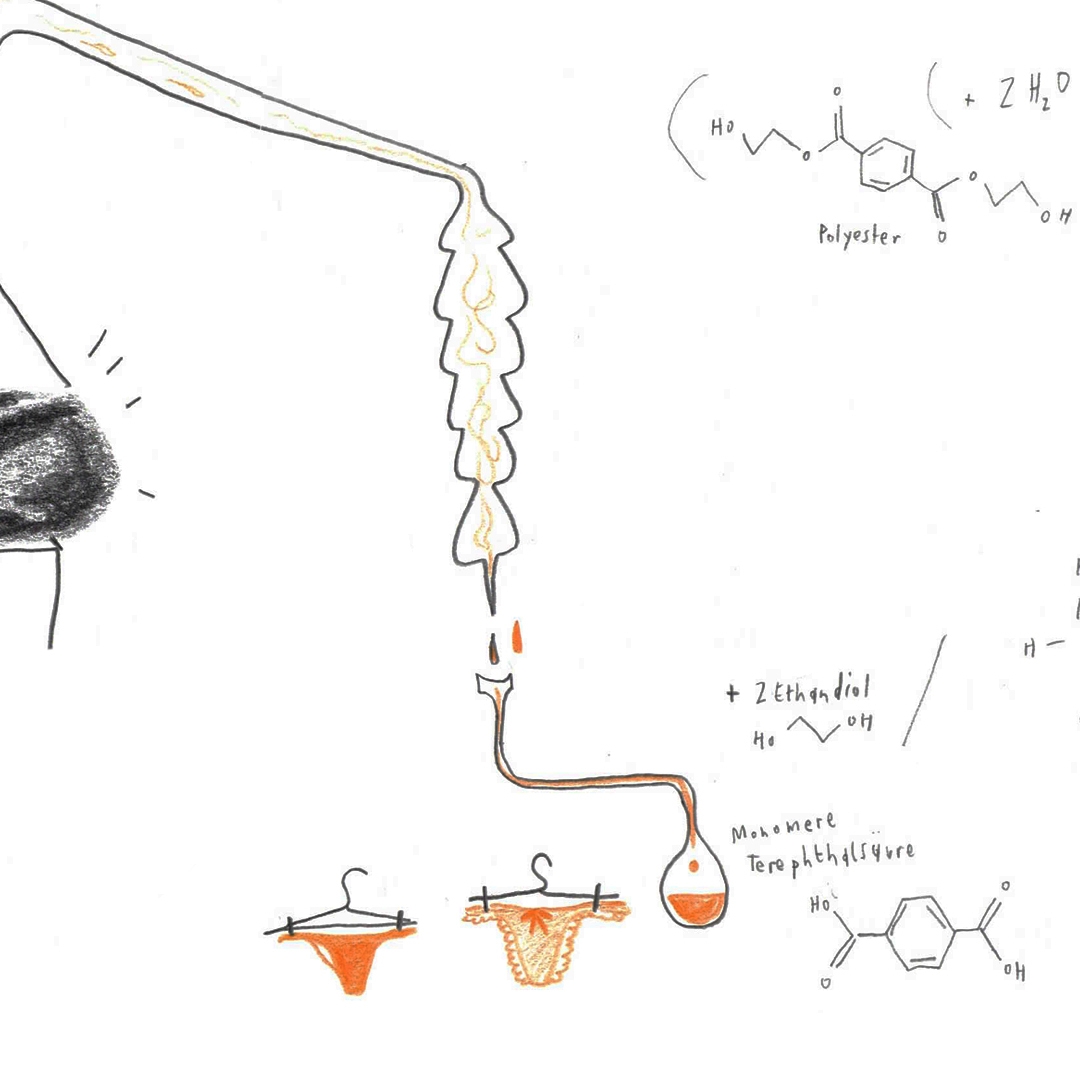 + 2 H2O
O
HO
O
O
OH
O
Polyester
H
+ 2 Ethandiol
HO
OH
Monomere
Terephthalsäure
HO
O
O
OH